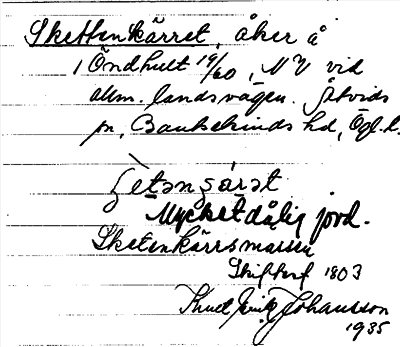 Skettenkärret, åker å
1 Öndhult 19/60, NV vid
allm. landsvägen. Åtvids
sn, Bankekinds hd, Ögl. l.
Mycket dålig jord.
Sketenkärrsmossen
Skifteskf 1803
Knut Erik Johansson
1935